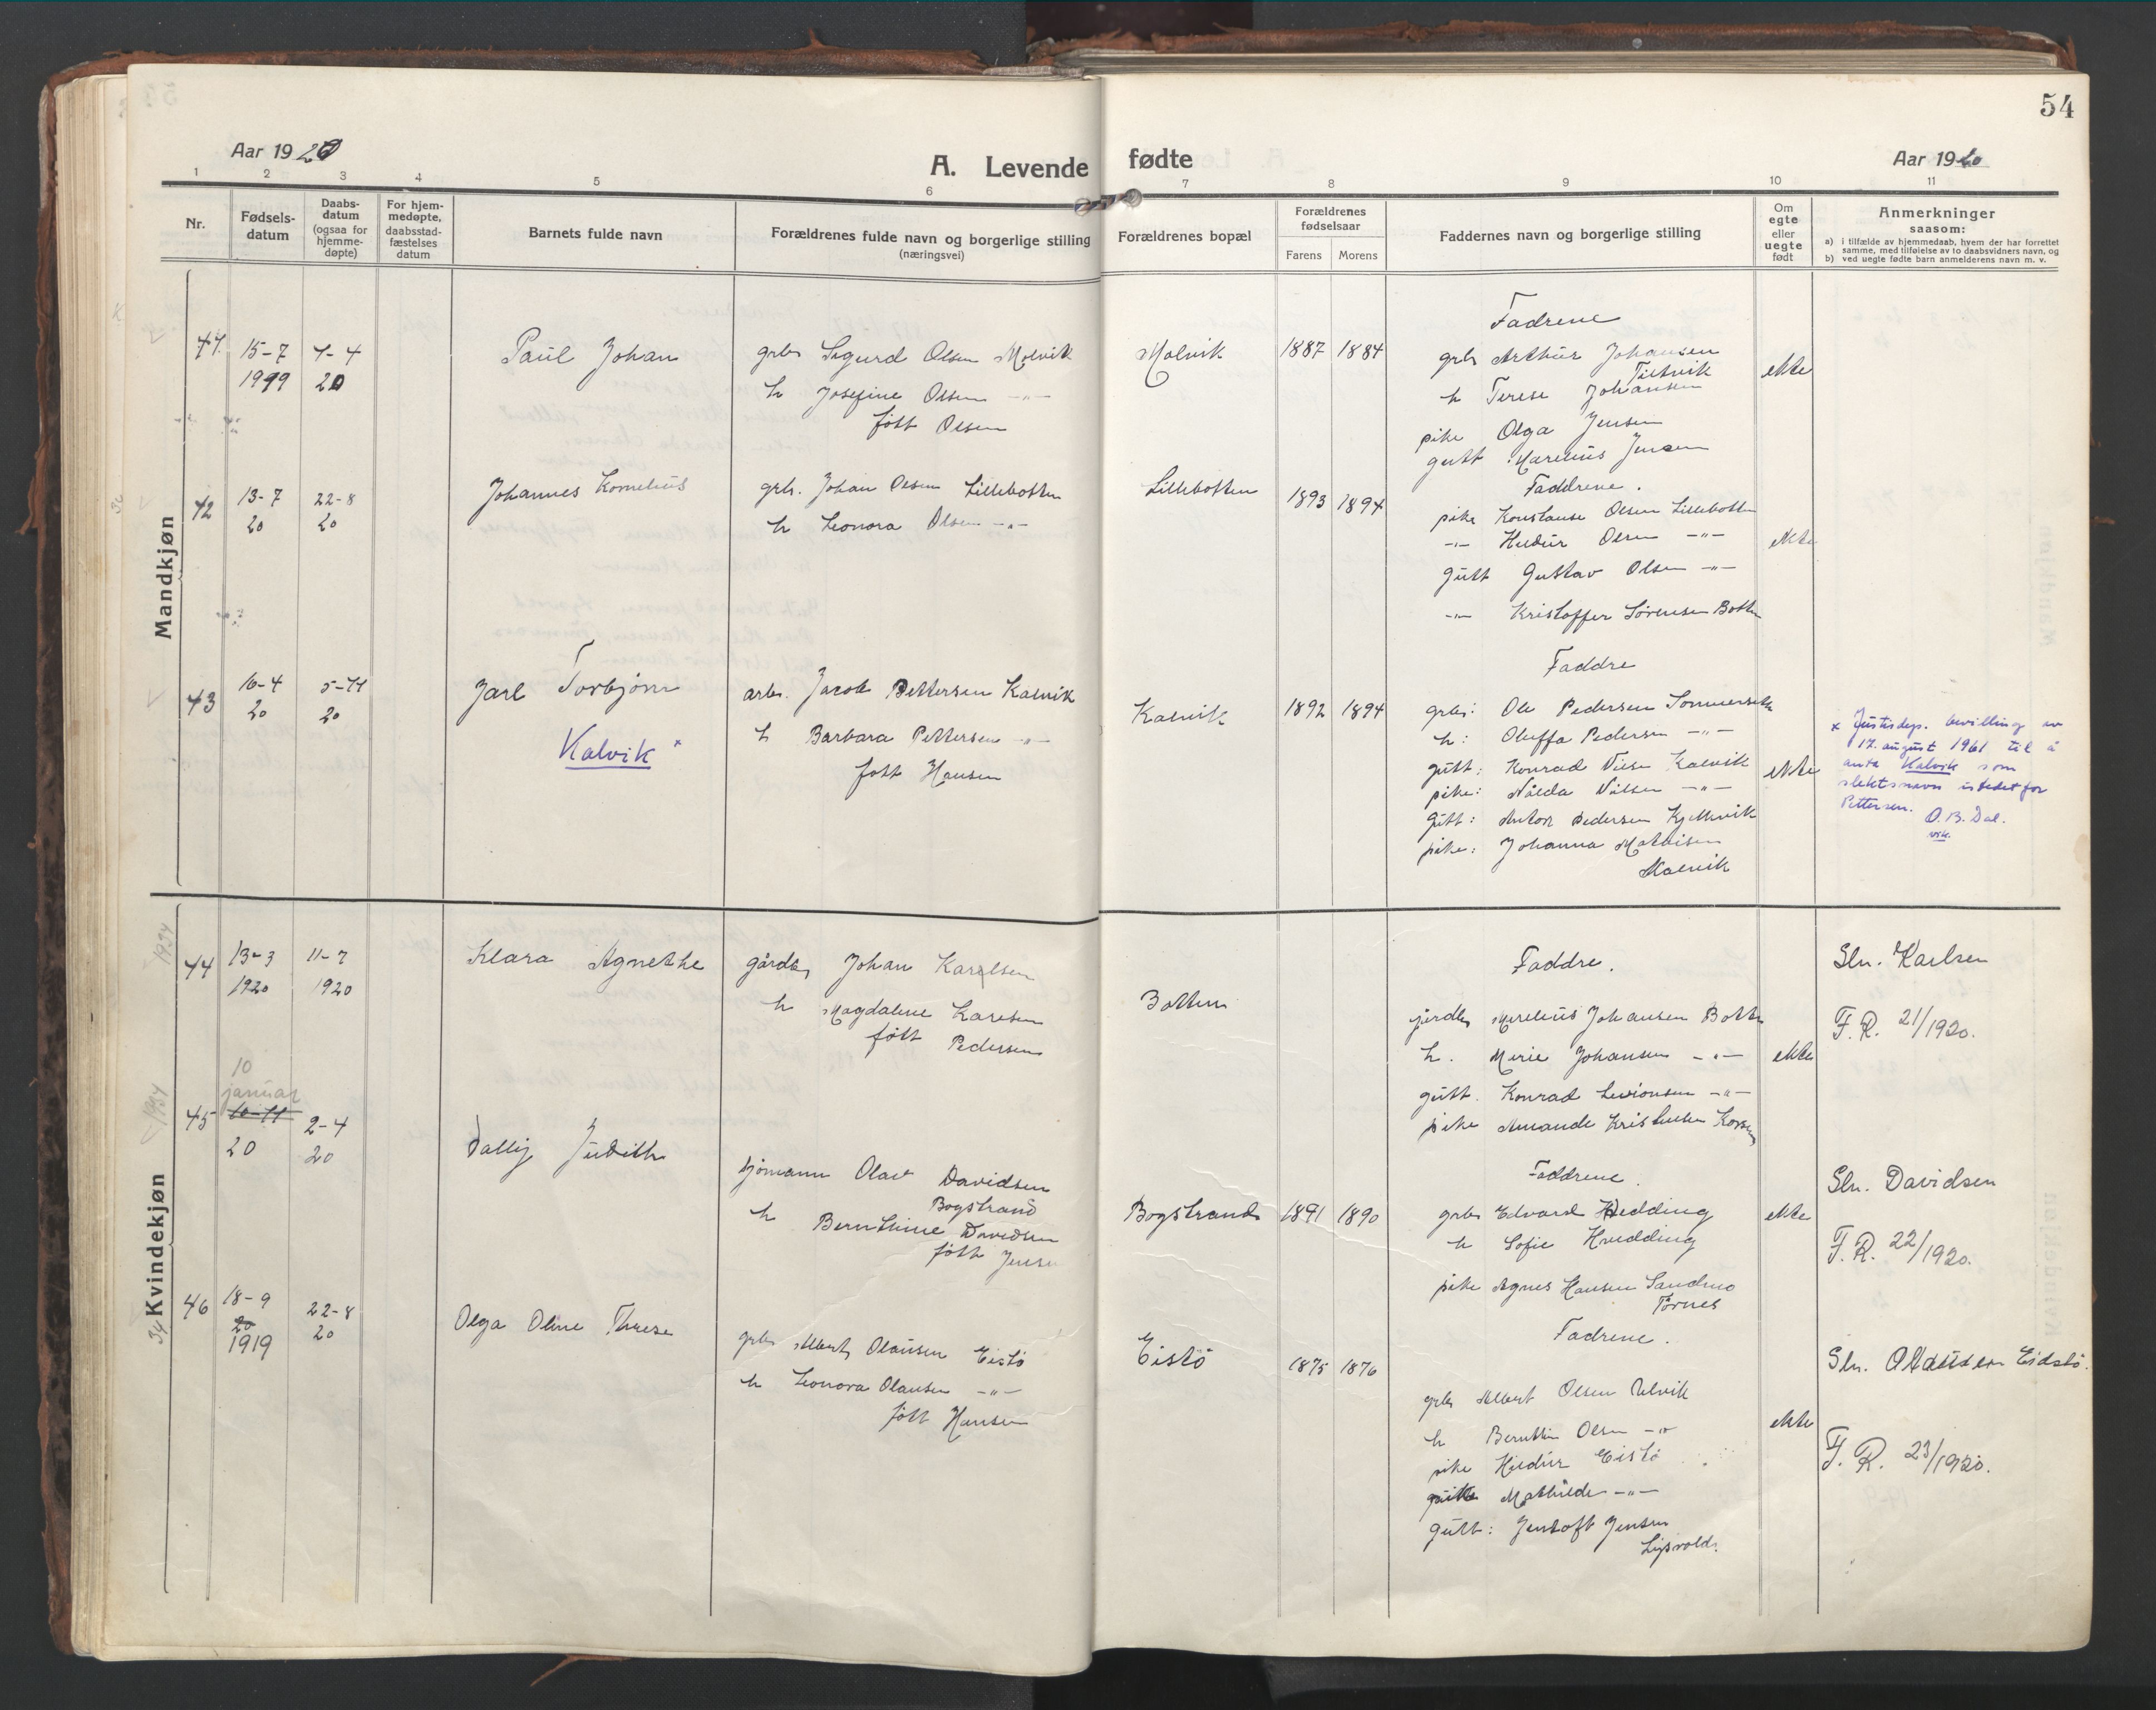 54
Aar 1920
A. Levende fødte
Aar 1920
1 2 3 4 5 6 7 8 9 10 11
Nr.
Fødsels-
datum
Daabs-
datum
(ogsaa for
hjemme-
døpte)
For hjem-
medøpte,
daabsstad-
fæstelses
datum
Barnets fulde navn
Forældrenes fulde navn og borgerlige stilling
(næringsvei)
Forældrenes bopæl
Forældrenes
fødselsaar
Farens Morens
Faddernes navn og borgerlige stilling
Om
egte
eller
uegte
født
Anmerkninger
saasom:
a) i tilfælde av hjemmedaab, hvem der har forrettet
samme, med tilføielse av to daabsvidners navn, og
b) ved uegte fødte barn anmelderens navn m. v.
Mandkjøn
41. 15-7 4-4
1919 20
Paul Johan
grbr Sigurd Olsen Molvik
h Josefine Olsen -"-
født Olsen
Molvik
1887 1884
Fadrene
grbr Arthur Johansen
Tiltvik
h Terese Johansen
pike Olga Jensen
gutt Marelius Jensen
ekte
42 13-7 22-8
20 20
Johannes Kornelius
grbr. Johan Olsen Lillebotten
h Leonora Olsen -"-
Lillebotten
1893 1894
Faddrene.
pike Konstanse Olsen Lillebotten
-"- Huldur Olsen -"-
Gutt Gustav Olsen -"-
-"- Kristoffer Sørensen Botten
ekte
43 16-4 5-11
20 20
Jarl Torbjørn
Kalvik ×
arbr. Jacob Pettersen Kalvik
h Barbara Pettersen -"-
født Hansen
Kalvik
1892 1894
Faddre
grbr: Ole Pedersen Sommerseth
h: Oluffa Pedersen -"-
gutt: Konrad Nilsen Kalvik
pike: Nålda Nilsen -"-
Gutt: Anton Pedersen Kjelkvik
pike: Johanna Mathisen
Kalvik
ekte
× Justisdep. bevilling av
17. august 1961 til å
anta Kalvik som
slektsnavn istedet for
Pettersen. O. B. Dal.
vik.
Kvindekjøn
1934
44 13-3 11-7
1920 1920
Klara Agnethe
gårdbr Johan Karlsen
h Magdalene Karlsen
født Pedersen
Botten
Faddre.
jordbr Merelius Johansen Botten
h. Merie Johansen -"-
gutt. Konrad Levionsen -"-
pike Amande Kristensen
ekte
Sln. Karlsen
F. R. 21/1920.
1934
10
januar
45 10-11 2-4
20 20
Dally Judith
sjømann Olav Davidsen
Bogstrand
h Bernthine Davidsen
født Jensen
Bogstrand
1891 1890
Faddrene.
grbr Edvard Hvedding
h Sofie Hvedding
pike Agnes Hansen Sandmo
Tørnes
ekte
Sln. Davidsen
F. R. 22/1920.
34
46 18-9 22-8
20 20
1919
Olga Oline Threse
grbr Albert Olausen Eistø
h Leonora Olausen -"-
født Hansen
Eistø
1875 1876
Fadrene.
grbr Albert Olsen Ulvik
h Bernthin Olsen -"-
pike Huldur Eistø
Mathilde -"-
gutt: Jentoft Jensen
ekte
Sln. Olausen Eidstø.
F. R. 23/1920.